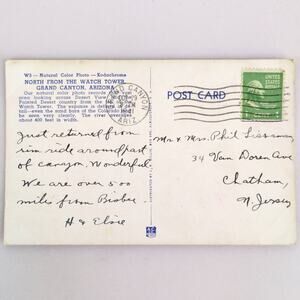 W3 - Natural Color Photo - Kodachrome
NORTH FROM THE WATCH TOWER,
GRAND CANYON, ARIZONA
Our natural color photo records the
area looking across Desert View
Painted Desert country from the
Watch Tower. The exposure is
tail—even the sand bars of the Colorado
be seen very clearly. The river averages
about 400 feet in width.
GRAND CANYON
ARIZ.
POST CARD
UNITED STATES
POSTAGE
Just returned from
rim ride around part
of canyon. Wonderful.
We are over 500
miles from Bisbee
H & Elsie
Mr & Mrs. Phil
34 Van Doren Ave
Chatham,
N. Jersey